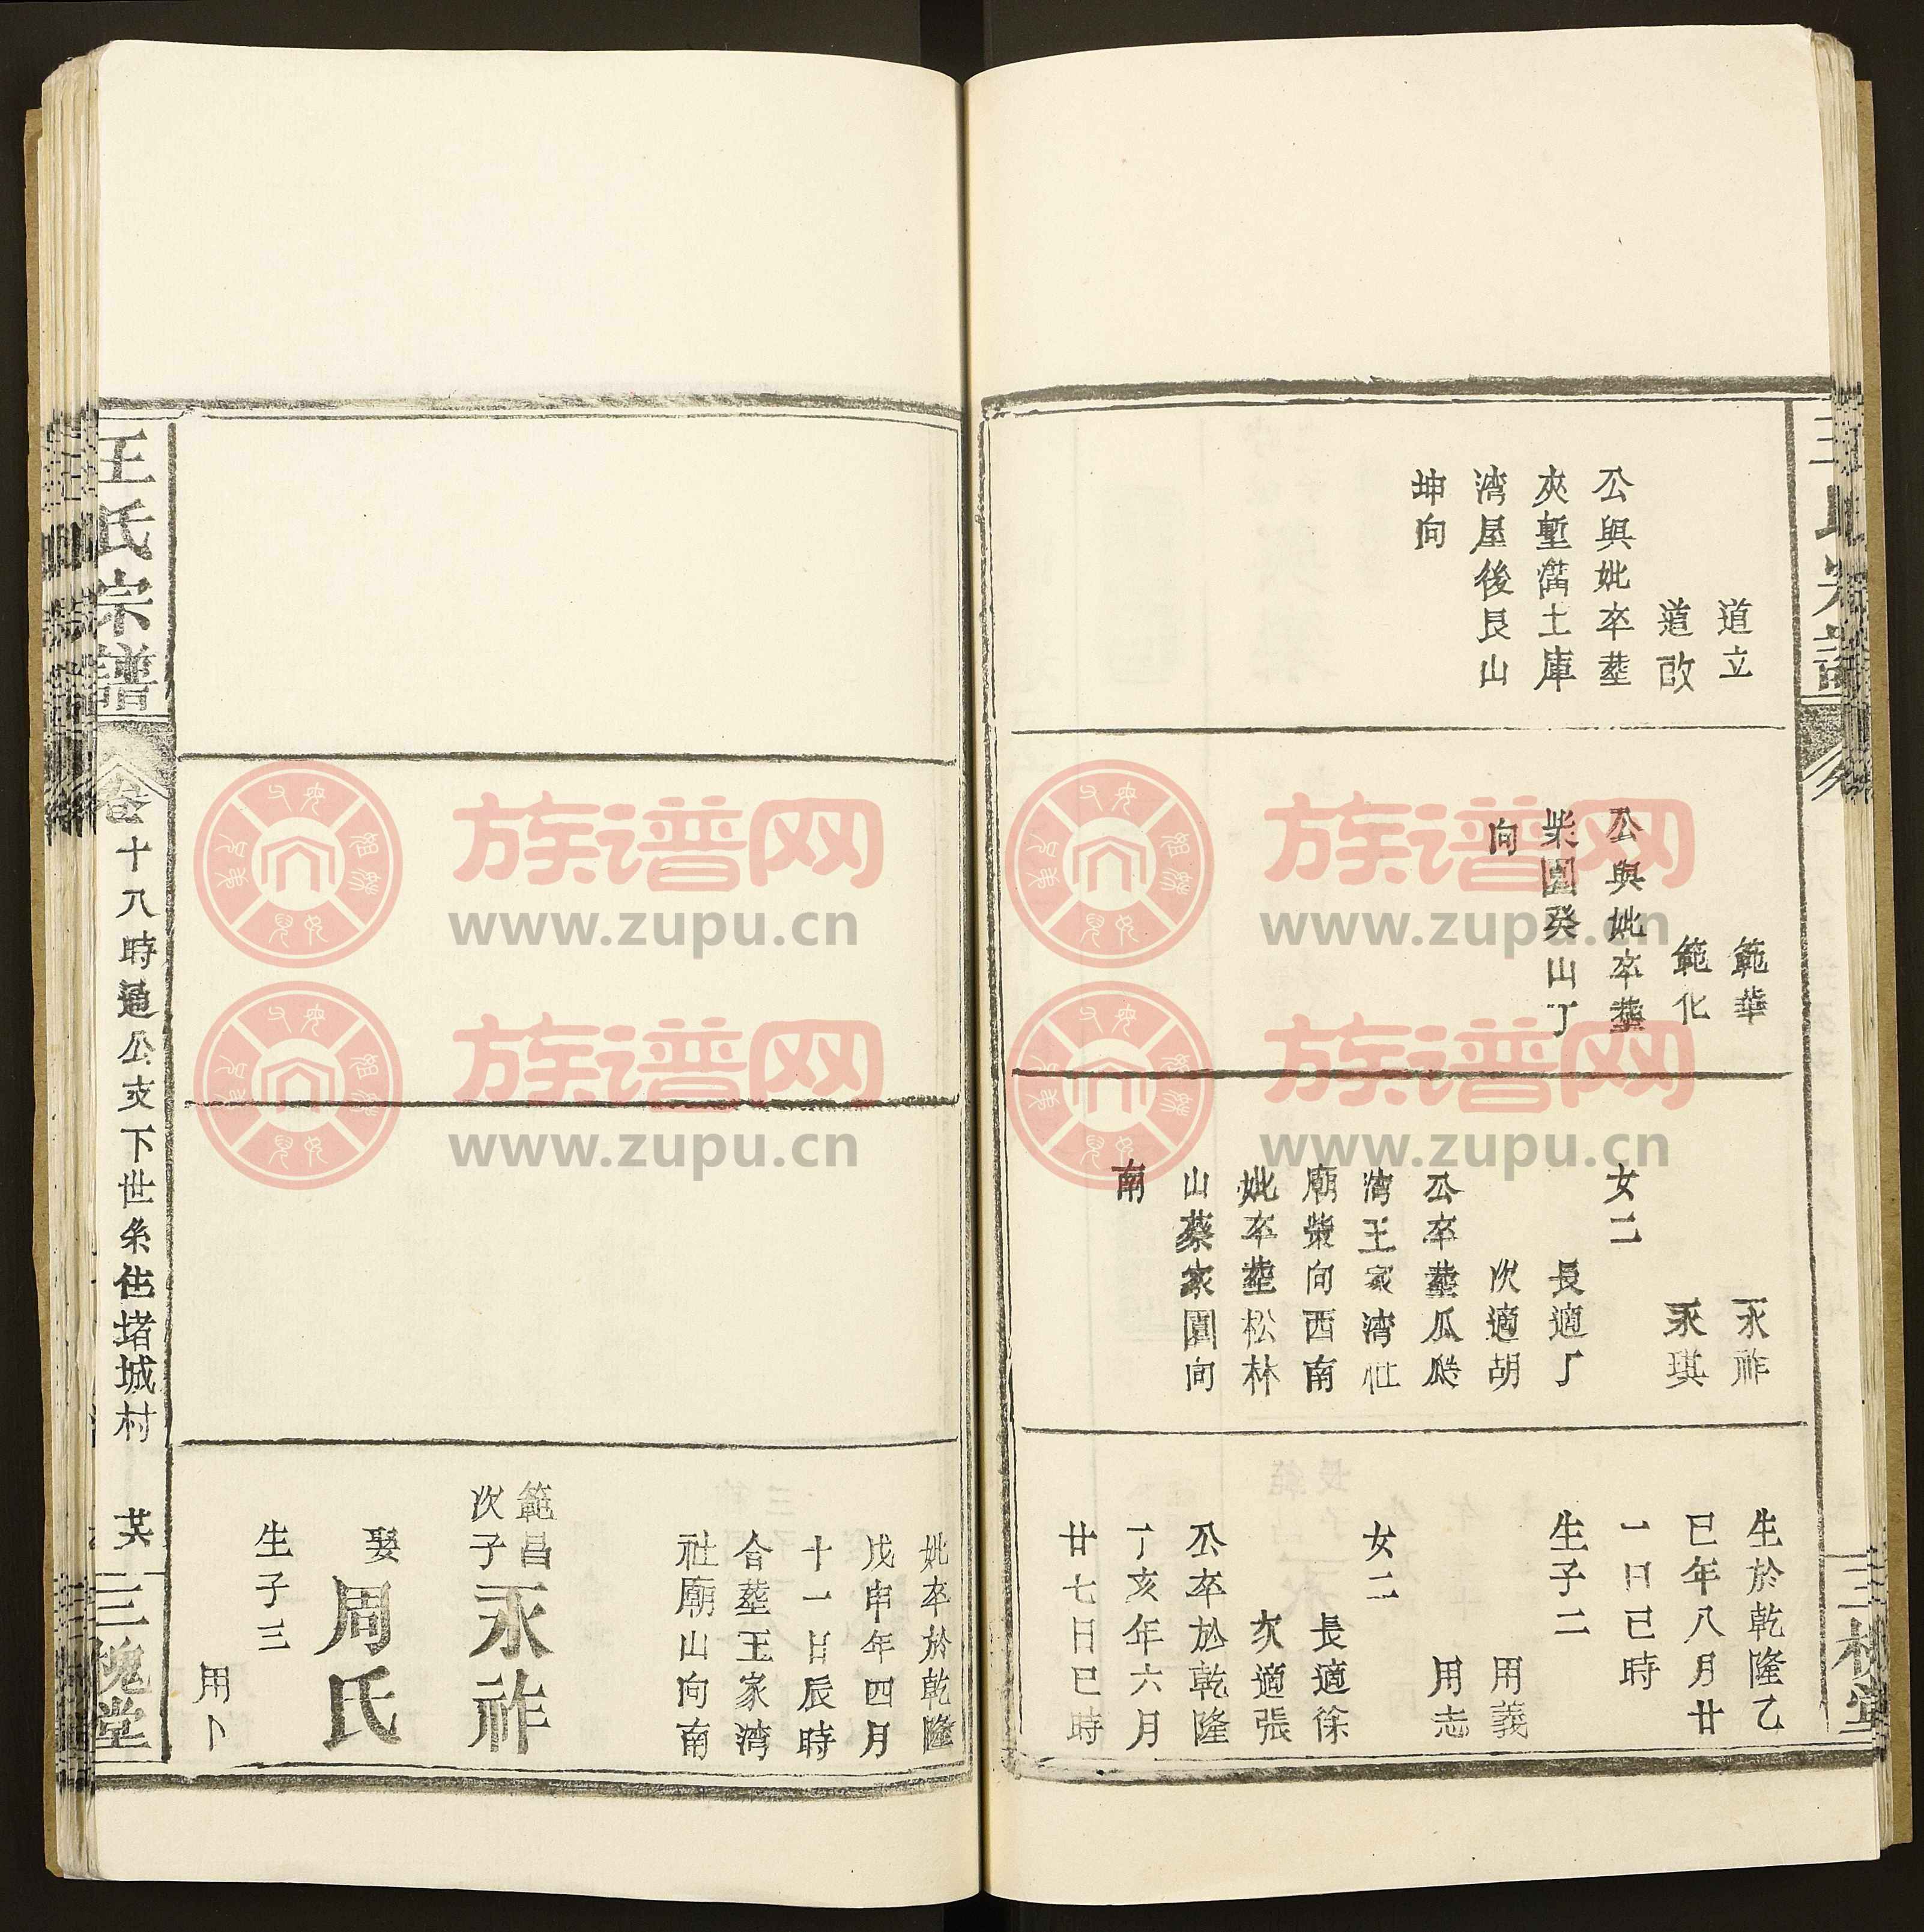 道立
道啟
公與妣卒塟
夾塹蕅土庫
湾屋後艮山
坤向
範華
範化
公與妣卒塟
柴園癸山丁
向
永祚
永琪
女二
長適丁
次適胡
公卒塟瓜㼐
湾王家湾社
廟柴向西南
妣卒塟松林
山蔡家園向
南
生於乾隆乙
巳年八月廿
一日巳時
生子二
用義
用志
女二
長適徐
次適張
公卒於乾隆
丁亥年六月
廿七日巳時
妣卒於乾隆
戊申年四月
十一日辰時
合塟王家湾
社廟山向南
範昌
次子
永祚
娶周氏
生子三
用卜
王氏宗譜
卷十八時通公支下世系住堵城村
芖
三槐堂
族谱网
www.zupu.cn
族谱网
www.zupu.cn
族谱网
www.zupu.cn
族谱网
www.zupu.cn